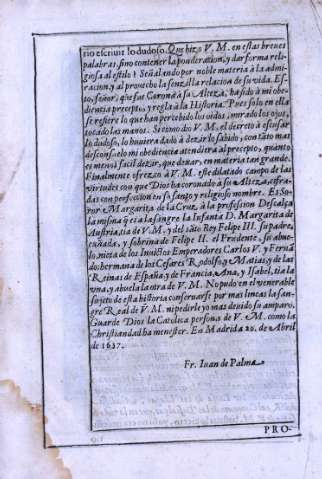 rio escriuir lo dudoso. Que hizo V. M. en estas breues
palabras, sino contener la ponderacion, y dar forma reli-
giosa al estilo? Señalando por noble materia à la admi-
racion, y al prouecho la senzilla relacion de su vida. Es-
to, señor, que fue Corona à su Alteza, ha sido à mi obe-
diencia precepto, y regla à la Historia. Pues solo en ella
se refiere lo que han percebido los oidos, mirado los ojos,
tocado las manos. Si como dò V. M. el decreto à escusar
lo dudoso, lo huuiera dado à dezir lo sabido, con tãto mas
desconsuelo mi obediencia atendiera al precepto, quanto
es menos facil dezir, que dexar, en materia tan grande.
Finalmente ofrezco à V. M. este dilatado campo de las
virtudes con que Dios ha coronado à su Alteza, cifra-
das con perfeccion en su santo y religioso nombre. Es So-
ror Margarita de la Cruz, à la profession Descalça
la misma q̃ es à la sangre la Infanta D. Margarita de
Austria, tia de V. M. y del sãto Rey Felipe III. su padre,
cuñada, y sobrina de Felipe II. el Prudente, su abue-
lo, nieta de los Inuictos Emperadores Carlos V. y Fernã-
do: hermana de los Cesares Rodolfo, y Matias, y de las
Reinas de España, y de Francia, Ana, y Isabel, tia la
vna, y abuela la otra de V. M. No pudo en el venerable
sujeto de esta historia conseruarse por mas lineas la san-
gre Real de V. M. ni pedirle yo mas deuido su amparo.
Guarde Dios la Catolica persona de V. M. como la
Christiandad ha menester. En Madrid a 20. de Abril
de 1637.
Fr. Iuan de Palma
PRO-